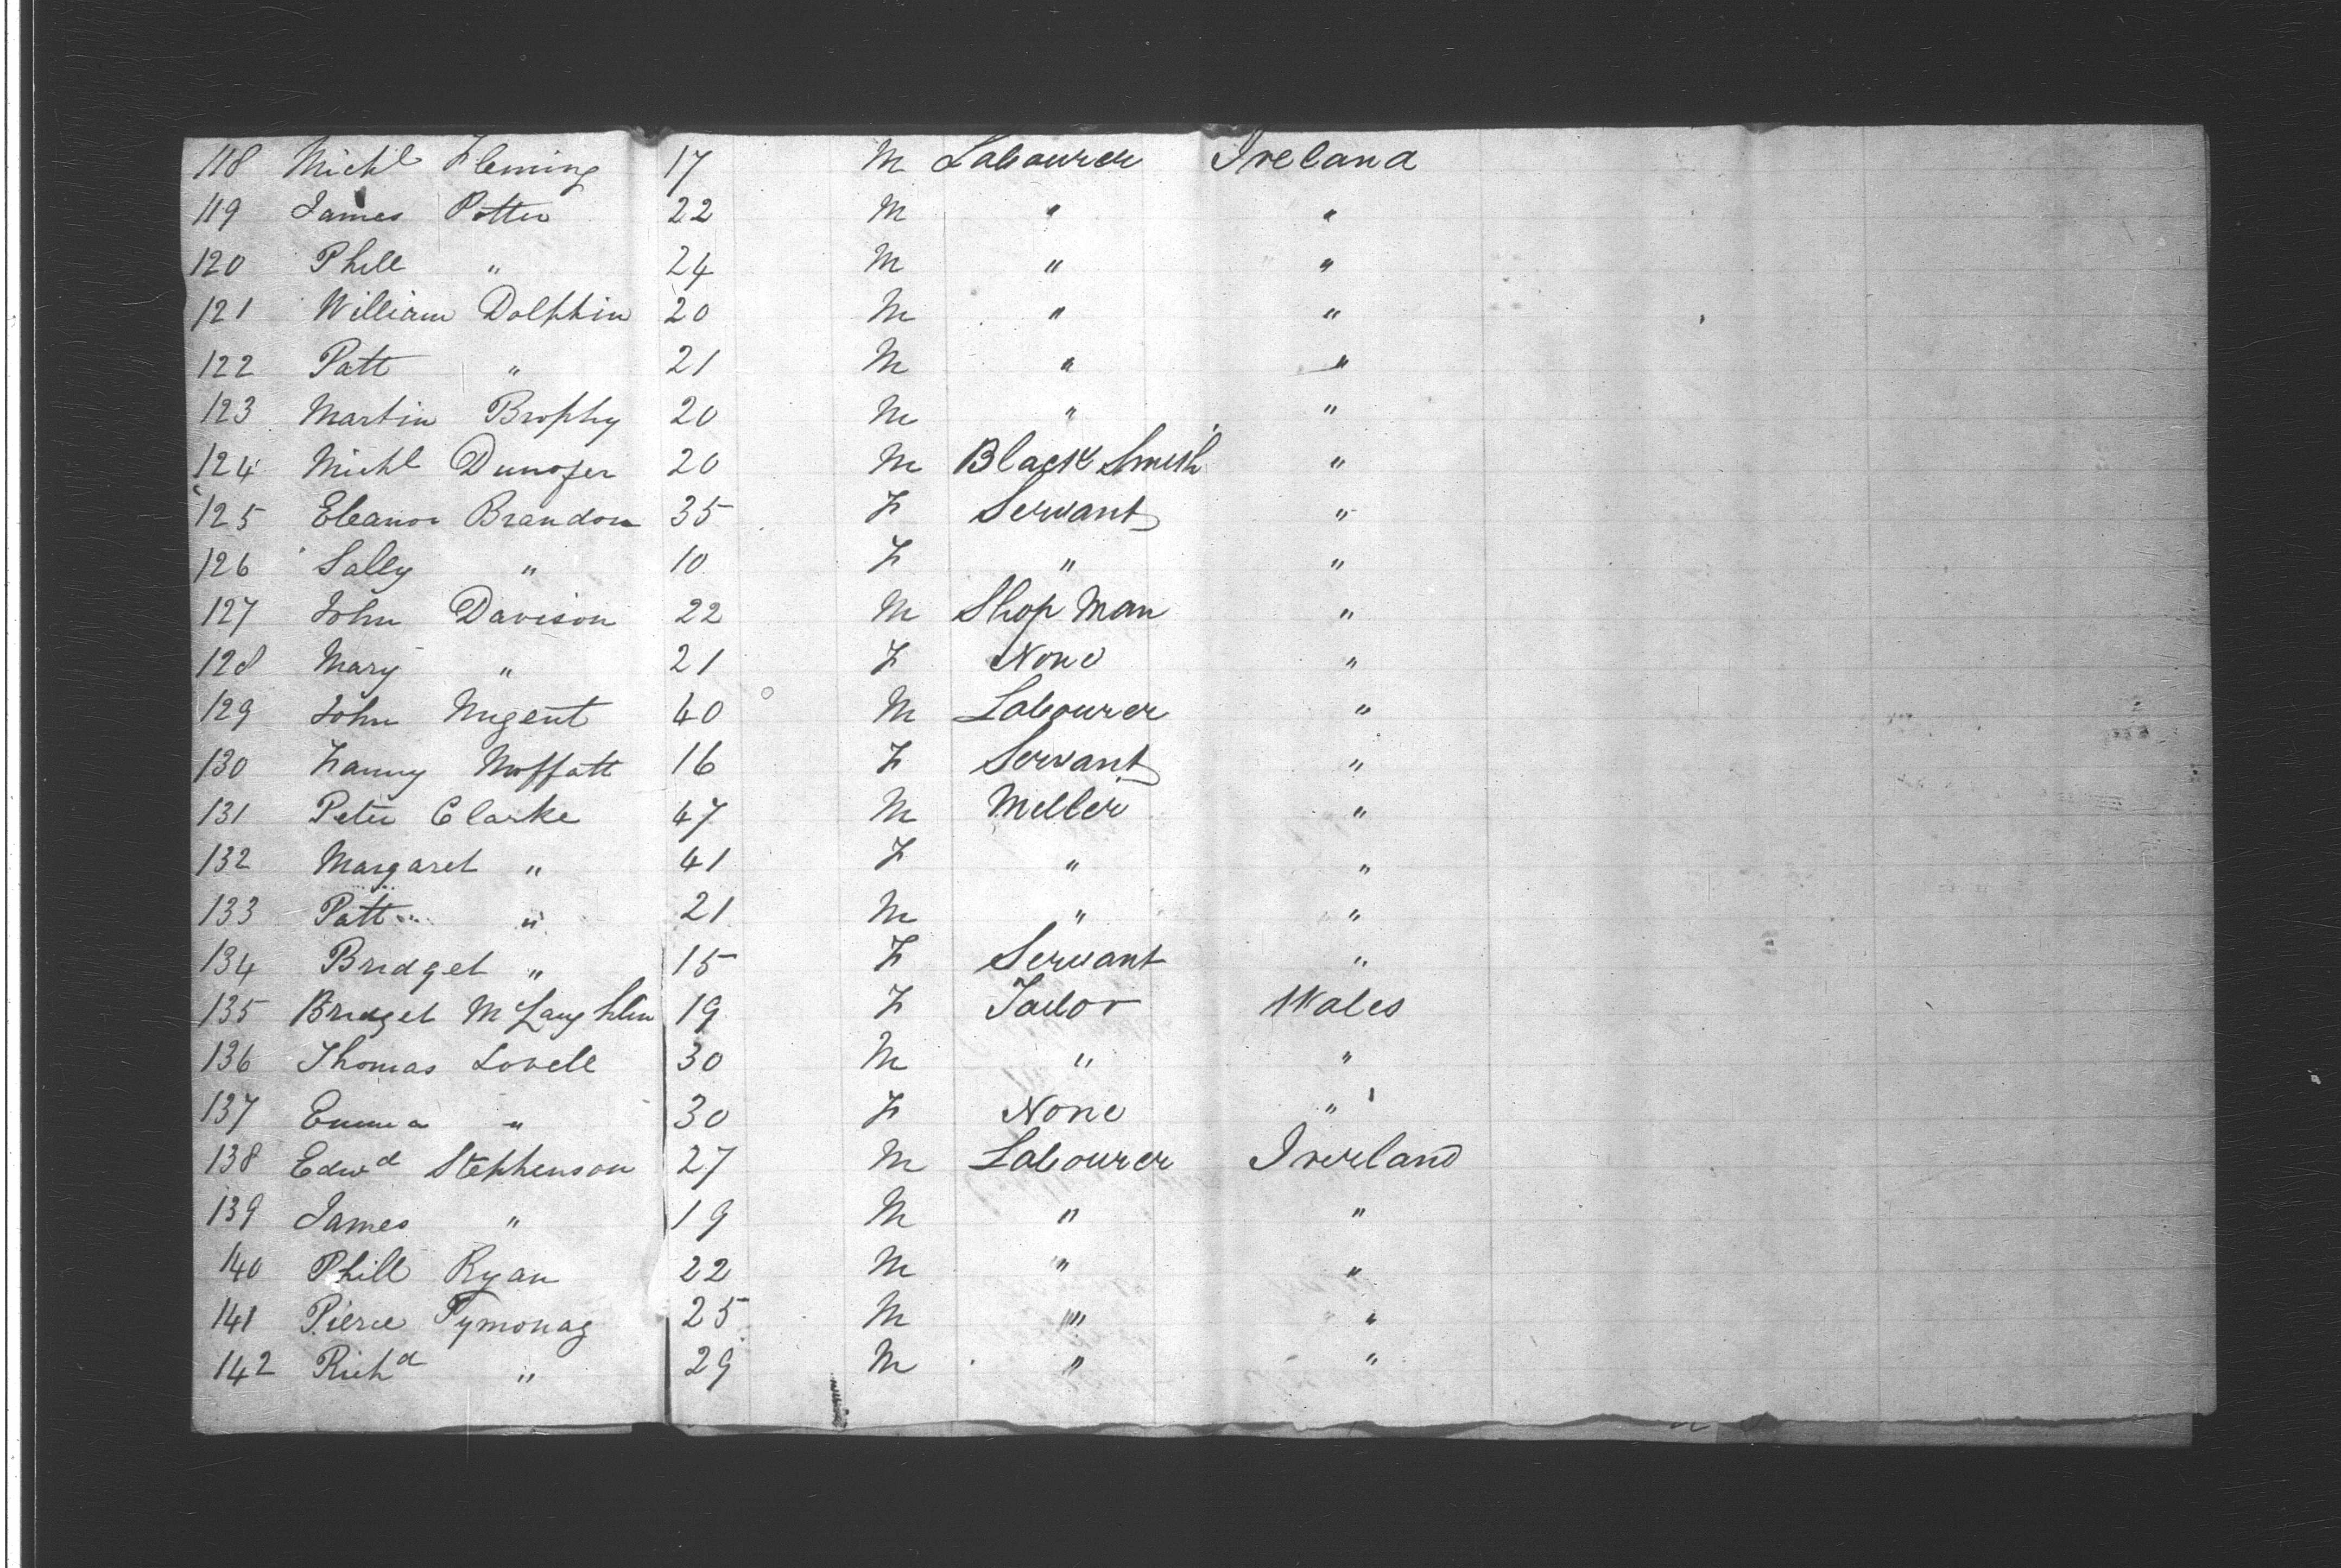 118 Michl Fleming 17 M Labourer Ireland
119 James Potter 22 M " "
120 Phill " 24 M " "
121 William Dolphin 20 M " "
122 Patt " 21 M " "
123 Martin Brophy 20 M " "
124 Michl 20 M Black Smith "
125 Eleanor Brandon 35 F Servant "
126 Sally " 10 F " "
127 John Davison 22 M Shop Man "
128 Mary " 21 F None "
129 John Nugent 40 M Labourer "
130 Fanny Moffatt 16 F Servant "
131 Peter Clarke 47 M Miller "
132 Margaret " 41 F " "
133 Patt " 21 M " "
134 Bridget " 15 F Servant "
135 Bridget McLaughlin 19 F Tailor Wales
136 Thomas Lovell 30 M " "
137 Emma " 30 F None "
138 Edwd Stephenson 27 M Labourer Irerland
139 James " 19 M " "
140 Phill Ryan 22 M " "
141 Pierce 25 M " "
142 Richd " 29 M " "